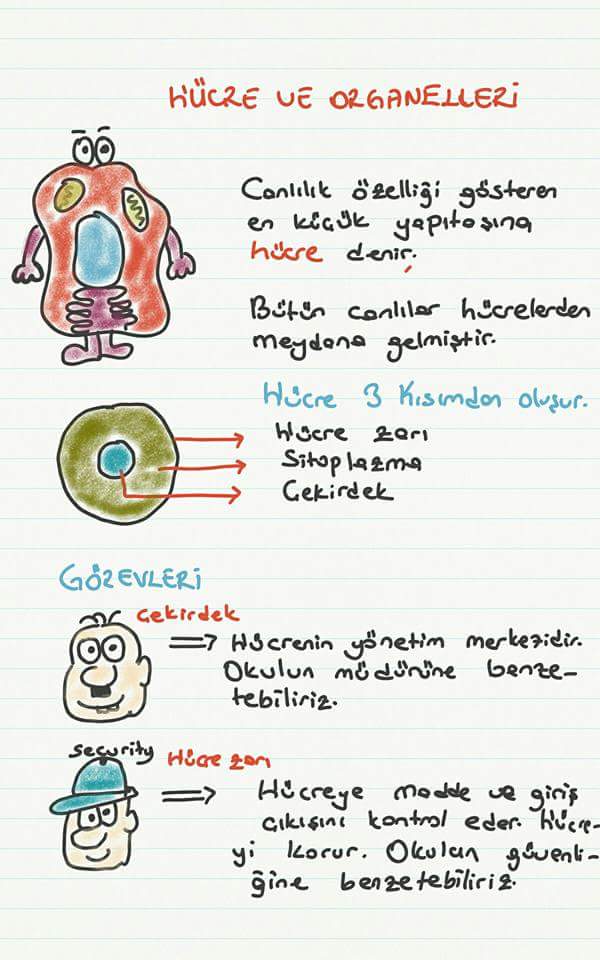 HÜCRE VE ORGANELLERİ
Canlılık özelliği gösteren
en küçük yapıtaşına
hücre denir.
Bütün canlılar hücrelerden
meydana gelmiştir.
Hücre 3 Kısımdan oluşur.
Hücre zarı
Sitoplazma
Çekirdek
GÖREVLERİ
Çekirdek
Hücrenin yönetim merkezidir.
Okulun müdürüne benze-
tebiliriz.
Security
Hücre zarı
Hücreye madde ve giriş
çıkışını kontrol eder. Hücre-
yi korur. Okulun güvenli-
ğine benzetebiliriz.